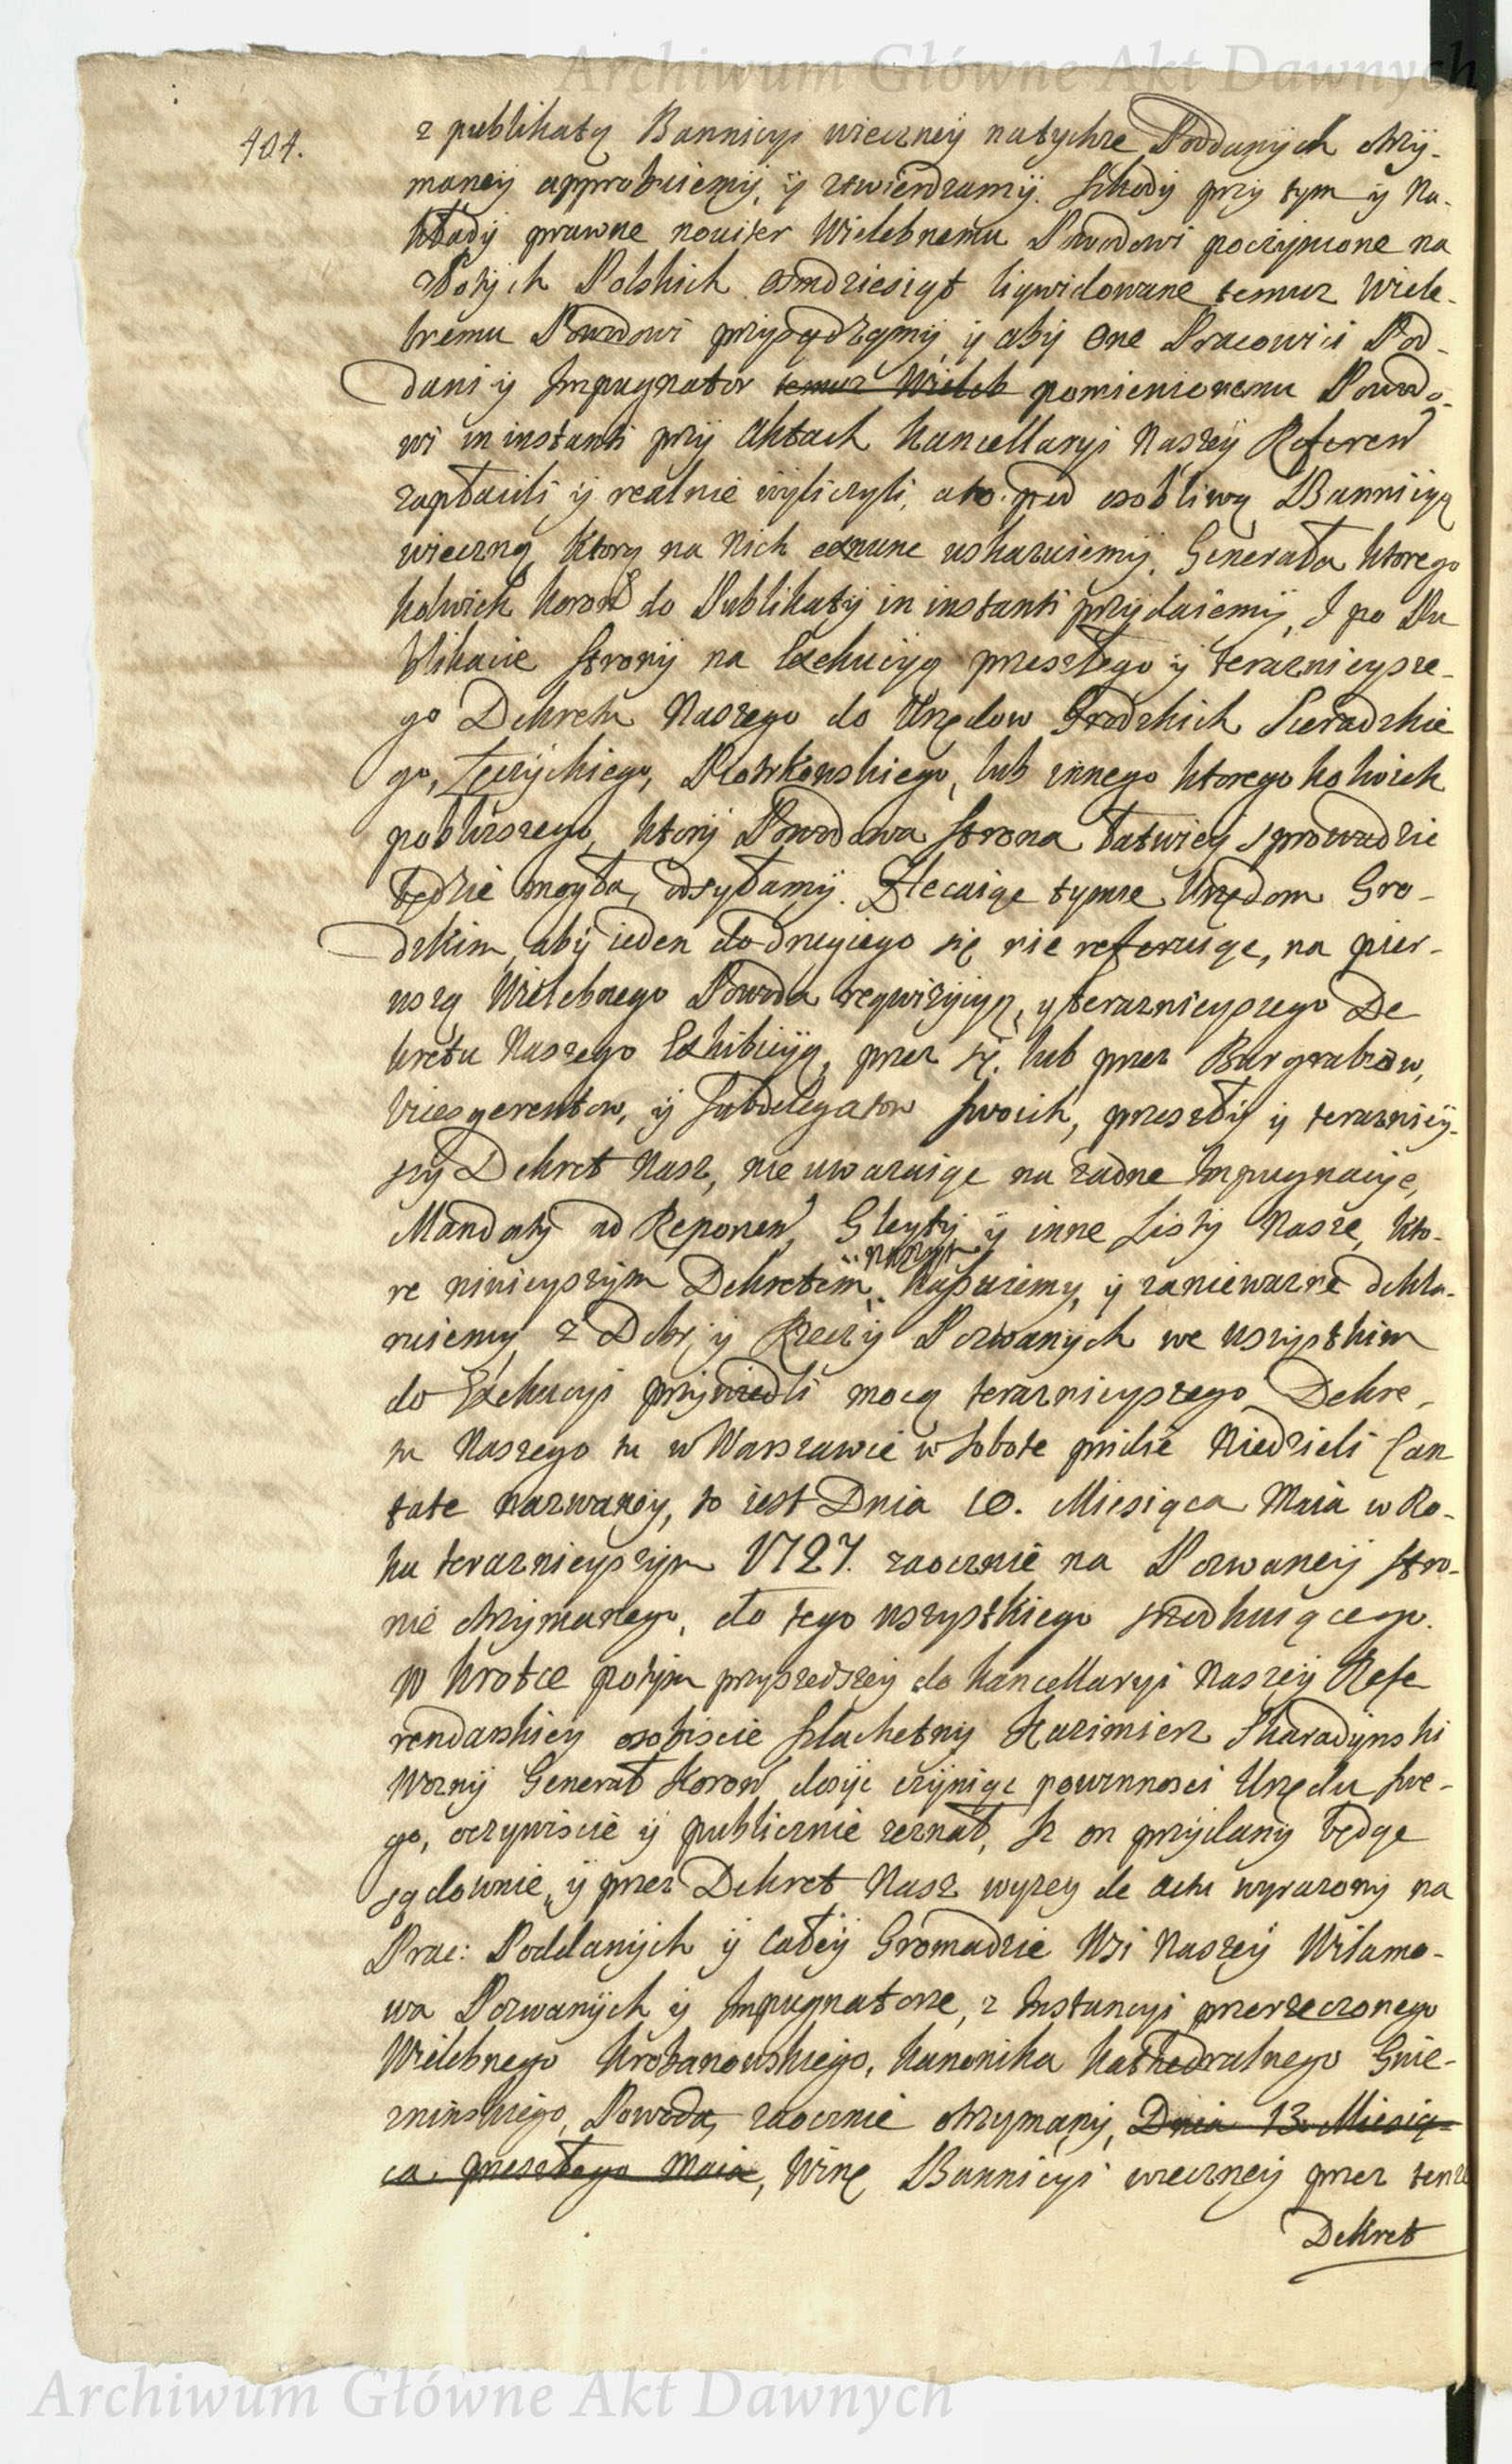 Archiwum Główne Akt Dawnych
404.
z publikatą Bannicyi wieczney natychże Poddanych otrzy-
maney approbuiemy, y ztwierdzamy. Szkody przy tym y Na-
kłady prawne noviter Wielebnemu Powodowi poczynione na
złotych Polskich osmdziesiąt liqwidowane temuz Wiele-
bnemu Powodowi przysądzamy y aby one Pracowici Pod-
dani y Impugnator temuz Wieleb pomienionemu Powodo-
wi in instanti przy Aktach Kancellaryi Naszey Referen
zapłacili y realnie wyliczyli, a to pod osobliwą Bannicyą
wieczną, Ktorą na Nich exnunc uskazuiemy. Generała ktorego
kolwiek Koron do Publikaty in instanti przydaiemy, I po Pu
blikacie strony na Exekucyą przeszłego y teraznieysze-
go Dekretu Naszego do Urzędow Grodzkich Sieradzkie
go, Łęczyckiego, Piotrkowskiego, lub innego ktorego kolwiek
pobliszego, ktory Powodowa Strona łatwiey sprowadzic
będzie mogła, odsyłamy. Zlecaiąc tymze Urzędom Gro-
dzkim, aby ieden do drugiego się nie referuiąc, na pier-
wszą Wielebnego Powoda reqwizycyą, y teraznieyszego De
kretu Naszego Exhibicyą, przez się lub przez Burgrabiow,
Vicesgerentow, y Subdelegatow swoich, przeszły y teraźniey-
szy Dekret Nasz, nie uwazaiąc na zadne Impugnacye,
Mandaty ad Reponen, Gleyty y inne Listy Nasze, kto-
naszym
re ninieyszym Dekretem, kassuiemy, y zanieważne dekla-
ruiemy z Dobr y Rzeczy Pozwanych we wszystkim
do Exekucyi przywiedli mocą teraznieyszego Dekre-
tu Naszego tu w Warszawie w Sobote pridie Niedzieli Can
tate nazwaney, to iest Dnia 10. Miesiąca Maia w Ro-
ku teraznieyszym 1727. zaocznie na Pozwaney stro-
nie otrzymanego, do tego wszystkiego posługuiącego.
W krotce potym przyszedszy do Kancellaryi Naszey Refe
rendarskiey osobiscie Szlachetny Kazimierz Skaradynski
Wozny Generał Koron, dosyc czyniąc powinnosci Urzędu swe-
go, oczywiscie y publicznie zeznał, Iz on przydany będąc
sądownie, y przez Dekret Nasz wyzey de actu wyrazony na
Prac: Poddanych y całey Gromadzie Wsi Naszey Wilamo-
wa Pozwanych y Impugnatorze, z Instancyi przerzeczonego
Wielebnego Krotanowskiego, Kanonika Kathedralnego Gnie-
znieńskiego, Powoda, zaocznie otrzymany, Dnia 13. Miesią-
ca przeszłego Maia, Winę Bannicyi wieczney przez tenze
Dekret
Archiwum Główne Akt Dawnych